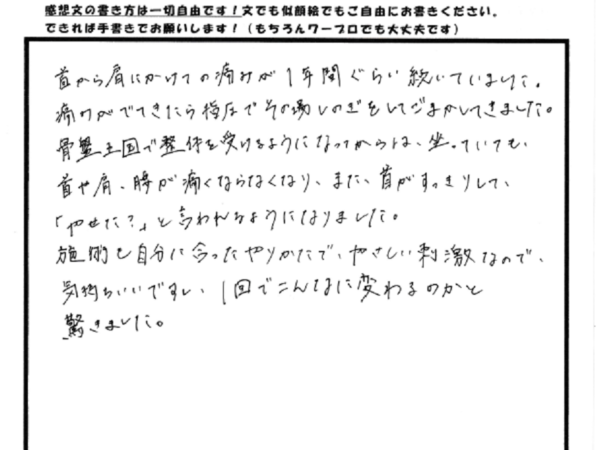 感想文の書き方は一切自由です！文でも似顔絵でもご自由にお書きください。
できれば手書きでお願いします！（もちろんワープロでも大丈夫です）
首から肩にかけての痛みが1年間ぐらい続いていました。
痛みがでてきたら指圧でその場しのぎをしてごまかしてきました。
骨盤王国で整体を受けるようになってからは、坐っていても、
首や肩、腰が痛くならなくなり、また、首がすっきりして、
「やせた？」と言われるようになりました。
施術も自分に合ったやりかたで、やさしい刺激なので、
気持ちいいですし、1回でこんなに変わるのかと
驚きました。